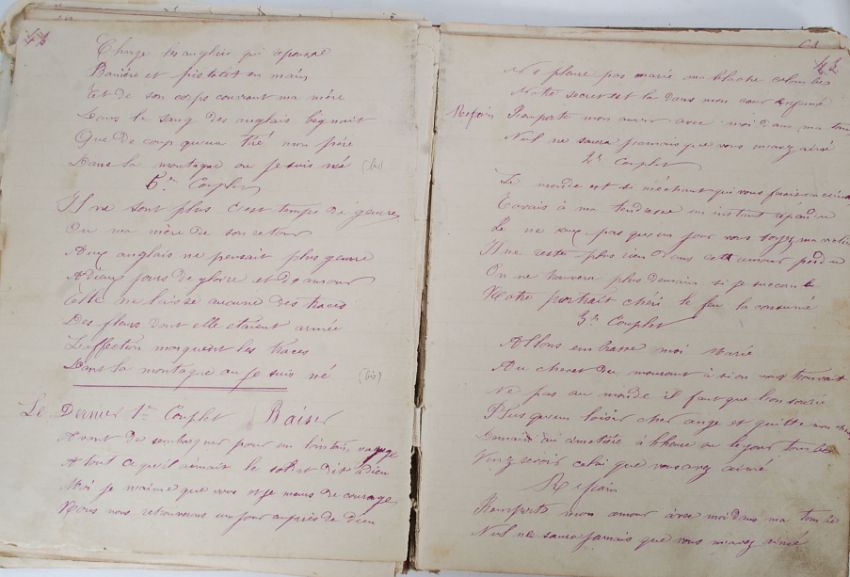 41
Charge les anglais qui
Banière et pistolet en main
Et de son corps couvrant ma mère
Dans le sang des anglais baignait
Que de coup qu'un tué mon père
Dans la montagne ou je suis né (bis)
5e Couplet
Il ne sont plus c'est temps de guerre
Ou ma mère de son retour
Aux anglais ne pensait plus guerre
Adieux jours de gloire et d'amour
Elle ne laisse aucune des traces
Des fleurs dont elle etaient armée
L'affection marquent les traces
Dans la montagne ou je suis né (bis)
Le Dernier 1er Couplet Baiser
Avant de sembarquer pour un lointin voyage
A tout ce qu'il aimait le soldat dit adieu
Moi je n'aime que vous et je meurs de courage
Nous nous retrouverons un jour auprès de dieu
42
Ne pleure pas marie ma blache colombe
Notre secret est la dans mon cœur
Refrain J'emporte mon amour avec moi dans ma tombe
Nul ne saura jamais que vous mavez aimé
2e Couplet
Le monde est si méchant qui vous
J'avais à ma tendresse un instant
Je ne veux pas qu'un jour vous soyez ma
Il ne reste plus rien cet amour perdu
On ne trouvera plus demain si je succombe
Notre portrait chéri le feu la consumé
3e Couplet
Allons embrasse moi Marie
Au chevet du mourant si on vous trouvait
Ne pas au monde il faut que l'on sourie
Plus qu'un loisir cher ange et quitte
Demain du cimetière à l'heure ou le jour tombe
Venez revoir celui que vous avez aimé
Refrain
J'emporte mon amour avec moi dans ma tombe
Nul ne saura jamais que vous mavez aimé